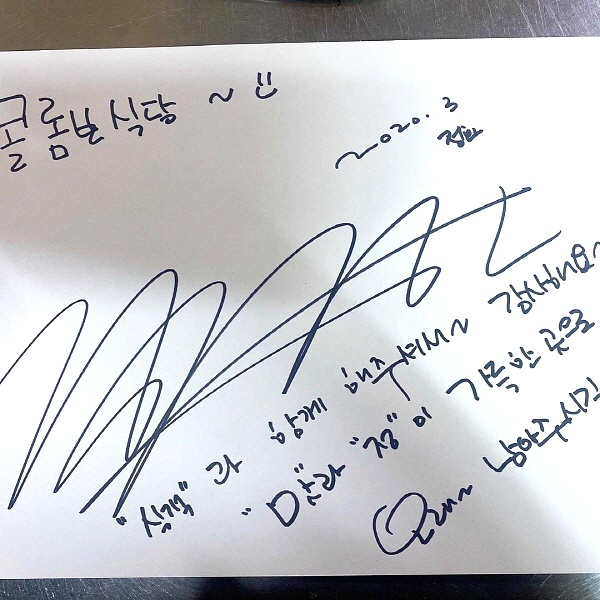 콜롬보 식당 ~
2020. 3
"식객" 과 함께 해주셔서~ 감사해요~
"맛"과 "정"이 가득한 곳으로
오래~ 남아주시길